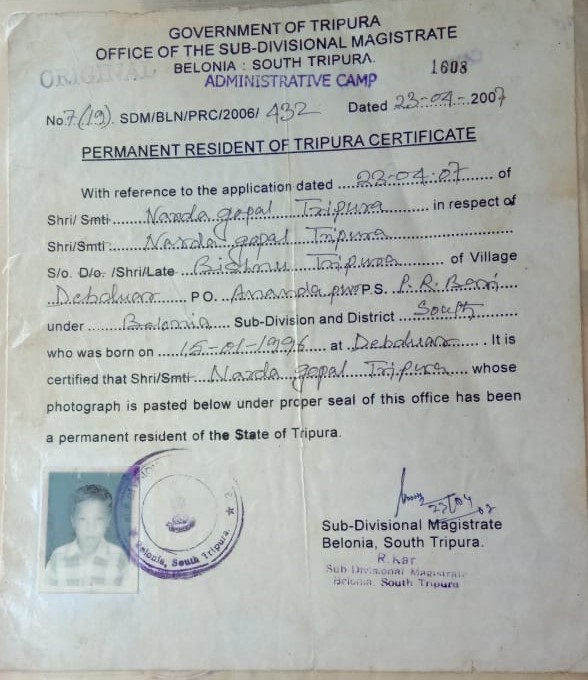 GOVERNMENT OF TRIPURA
OFFICE OF THE SUB-DIVISIONAL MAGISTRATE
BELONIA : SOUTH TRIPURA.
ADMINISTRATIVE CAMP
1608
No.7(19). SDM/BLN/PRC/2006/ 432 Dated 23-04-2007
PERMANENT RESIDENT OF TRIPURA CERTIFICATE
With reference to the application dated 22-04-07 of
Shri/ Smti Nanda gopal Tripura in respect of
Shri/Smti Nanda gopal Tripura
S/o. D/o. /Shri/Late Bishnu Tripura of Village
Debdwar PO. Ananda pur P.S. P. R. Bari
under Belonia Sub-Division and District South
who was born on 15-01-1996 at Debdwar. It is
certified that Shri/Smti Nanda gopal Tripura whose
photograph is pasted below under proper seal of this office has been
a permanent resident of the State of Tripura.
Belonia, South Tripura.
23/04
07
Sub-Divisional Magistrate
Belonia, South Tripura.
R. Kar
Sub Divisional Magistrate
Belonia, South Tripura